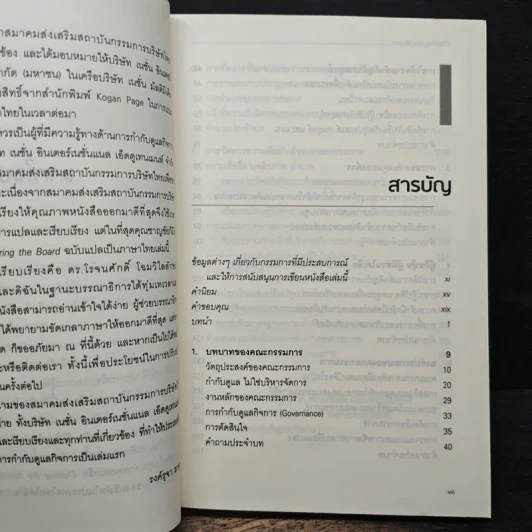 กสมาคมส่งเสริมสถาบันกรรมการบริษัทไทย
ข้อง และได้มอบหมายให้บริษัท เนชั่น อินเตอร์
กัด (มหาชน) ในเครือบริษัท เนชั่น มัลติมีเดีย
สิทธิ์จากสำนักพิมพ์ Kogan Page ในการแปล
ไทยในเวลาต่อมา
ควรเป็นผู้ที่มีความรู้ทางด้านการกำกับดูแลกิจการ
ท เนชั่น อินเตอร์เนชั่นแนล เอ็ดดูเทนเมนท์ จำกัด
สมาคมส่งเสริมสถาบันกรรมการบริษัทไทย
และเนื่องจากสมาคมส่งเสริมสถาบันกรรมการบริษัท
เรียงให้คุณภาพหนังสือออกมาดีที่สุดจึงใช้เวลา
การแปลและเรียบเรียง แต่ในที่สุดคุณชาญชัย
ring the Board ฉบับแปลเป็นภาษาไทยเล่มนี้
เรียบเรียงคือ ดร.โรจนศักดิ์ โฉมวิไลลักษณ์
และดิฉันในฐานะบรรณาธิการได้ทุ่มเทเวลา
หนังสือสามารถอ่านเข้าใจได้ง่าย ผู้ช่วยบรรณาธิการ
ได้พยายามขัดเกลาภาษาให้ออกมาดีที่สุด และ
ด ก็ขออภัยมา ณ ที่นี้ด้วย และหากเป็นไปได้
ะหรือติดต่อเรา ทั้งนี้เพื่อประโยชน์ในการปรับ
นครั้งต่อไป
ามของสมาคมส่งเสริมสถาบันกรรมการบริษัทไทย
ย ทั้งบริษัท เนชั่น อินเตอร์เนชั่นแนล เอ็ดดูเทนเมนท์
และเรียบเรียงและทุกท่านที่เกี่ยวข้อง ที่ทำให้ประเทศ
การกำกับดูแลกิจการเป็นเล่มแรก
สารบัญ
ข้อมูลต่างๆ เกี่ยวกับกรรมการที่มีประสบการณ์
และให้การสนับสนุนการเขียนหนังสือเล่มนี้ xi
คำนิยม xv
คำขอบคุณ xix
บทนำ 1
1. บทบาทของคณะกรรมการ 9
วัตถุประสงค์ของคณะกรรมการ 10
กำกับดูแล ไม่ใช่บริหารจัดการ 20
งานหลักของคณะกรรมการ 29
การกำกับดูแลกิจการ (Governance) 33
การตัดสินใจ 35
คำถามประจำบท 40
vii